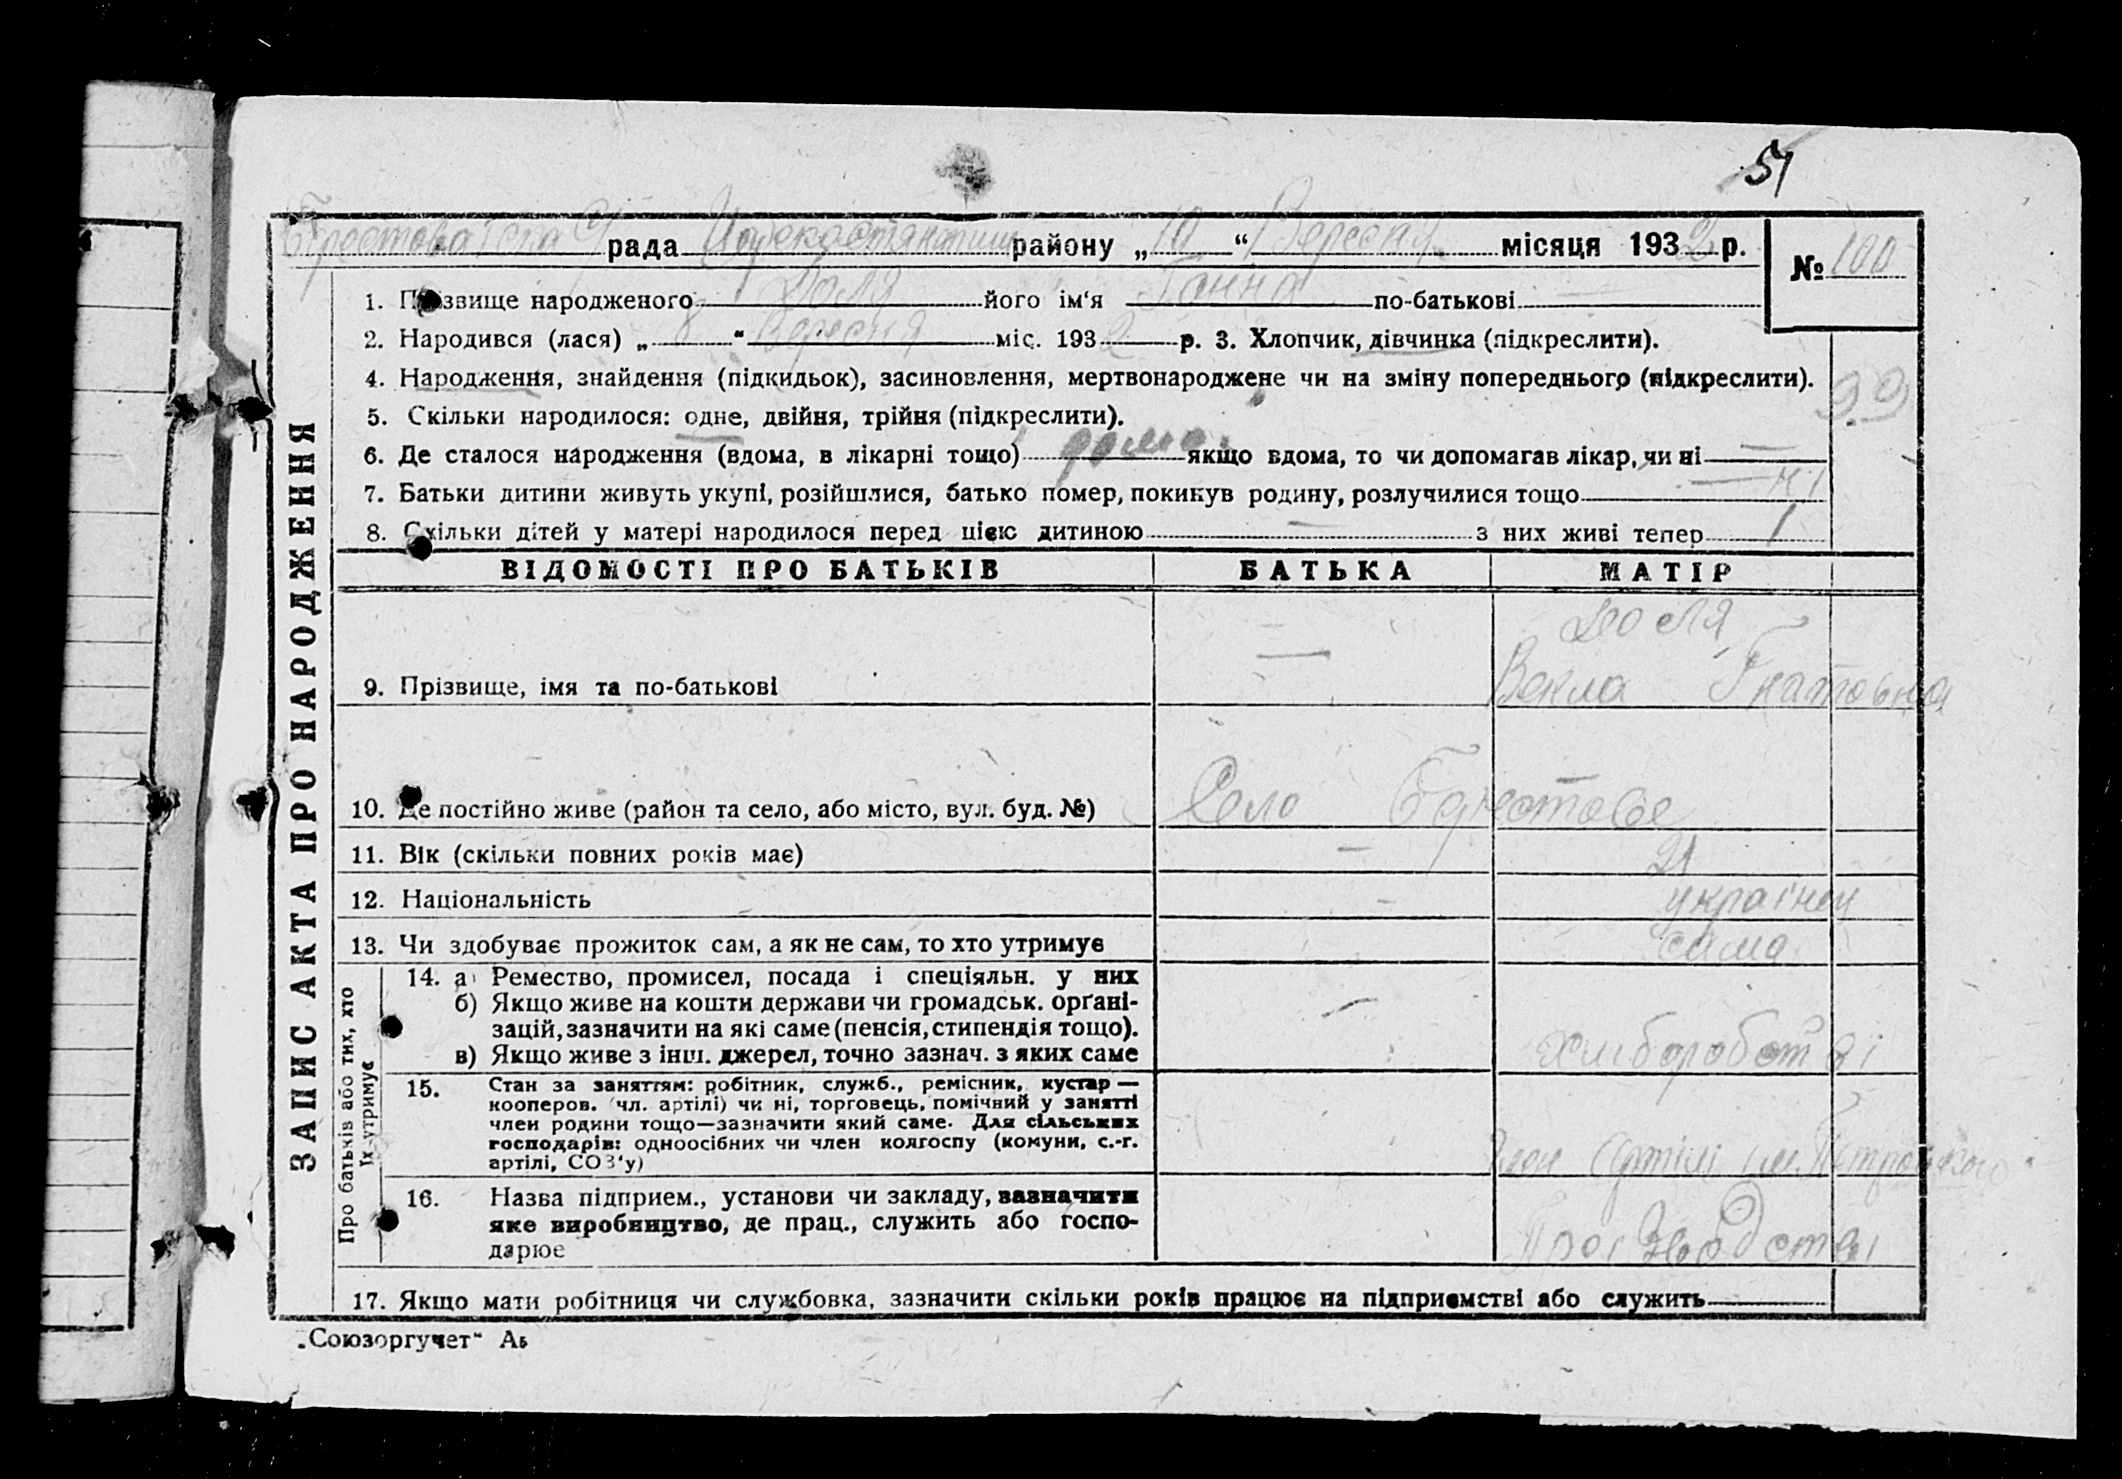 51
рада району „ 10 “ Вересня місяця 1932 р.
№ 100
1. Прізвище народженого Доля його ім‘я Ганна по-батькові —
2. Народився (лася) „ 8 “ Вересня міс. 1932 р. 3. Хлопчик, дівчинка (підкреслити).
4. Народження, знайдення (підкидьок), засиновлення, мертвонароджене чи на зміну попереднього (підкреслити).
99
5. Скільки народилося: одне, двійня, трійня (підкреслити).
6. Де сталося народження (вдома, в лікарні тощо) дома якщо вдома, то чи допомагав лікар, чи ні —
7. Батьки дитини живуть укупі, розійшлися, батько помер, покинув родину, розлучилися тощо — ні
8. Скільки дітей у матері народилося перед цією дитиною — з них живі тепер 1
ЗАПИС АКТА ПРО НАРОДЖЕННЯ
ВІДОМОСТІ ПРО БАТЬКІВ БАТЬКА МАТІР
Доля
9. Прізвище, імя та по-батькові — Векла Гнатовна
10. Де постійно живе (район та село, або місто, вул. буд. №) Село Берестове
11. Вік (скільки повних років має) — 21
12. Національність —
13. Чи здобуває прожиток сам, а як не сам, то хто утримує сама
Про батьків або тих, хто
їх утримує
14. а) Ремество, промисел, посада і спеціяльн. у них
б) Якщо живе на кошти держави чи громадськ. орґані-
зацій, зазначити на які саме (пенсія, стипендія тощо).
в) Якщо живе з інш. джерел, точно зазнач. з яких саме —
15. Стан за заняттям: робітник, служб., ремісник, кустар —
кооперов. (чл. артілі) чи ні, торговець, помічний у занятті
член родини тощо—зазначити який саме. Для сільських
господарів: одноосібних чи член колгоспу (комуни, с.-г.
артілі, СОЗ‘у) член Артілі ім. Петровського
16. Назва підприєм., установи чи закладу, зазначити
яке виробництво, де прац., служить або госпо-
дарює
17. Якщо мати робітниця чи службовка, зазначити скільки років працює на підприємстві або служить
„Союзоргучет“